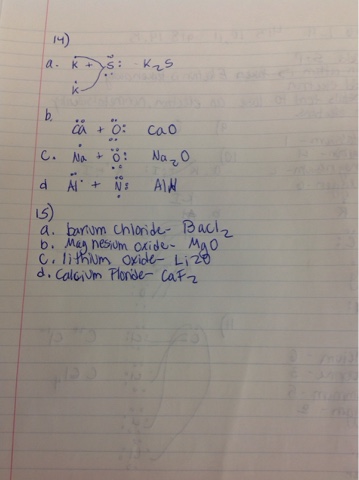 14)
a. K + S: K₂S
K
b.
Ca + O: CaO
c. Na + O: Na₂O
d Al + N: AlN
15)
a. barium chloride- Bacl₂
b. Magnesium oxide- MgO
c. lithium oxide- Li20
d. Calcium Floride- CaF₂